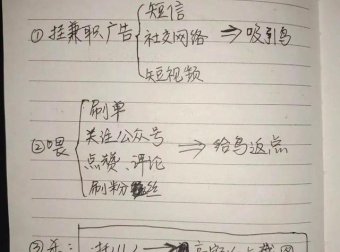 短信
①挂兼职广告 社交网络 ⇒吸引鸟
短视频
刷单
关注公众号
②喂 ⇒给鸟返点
点赞、评论
刷粉丝
③